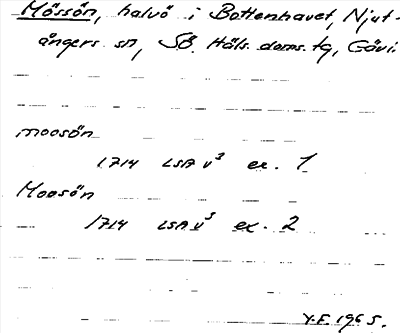 Mössön, halvö i Bottenhavet, Njut-
ångers sn, Sö. Häls. doms. tg, Gävl.
moosön
1714 LSA v³ ex. 1
Moosön
1714 LSA v³ ex. 2
Y.F. 1965.